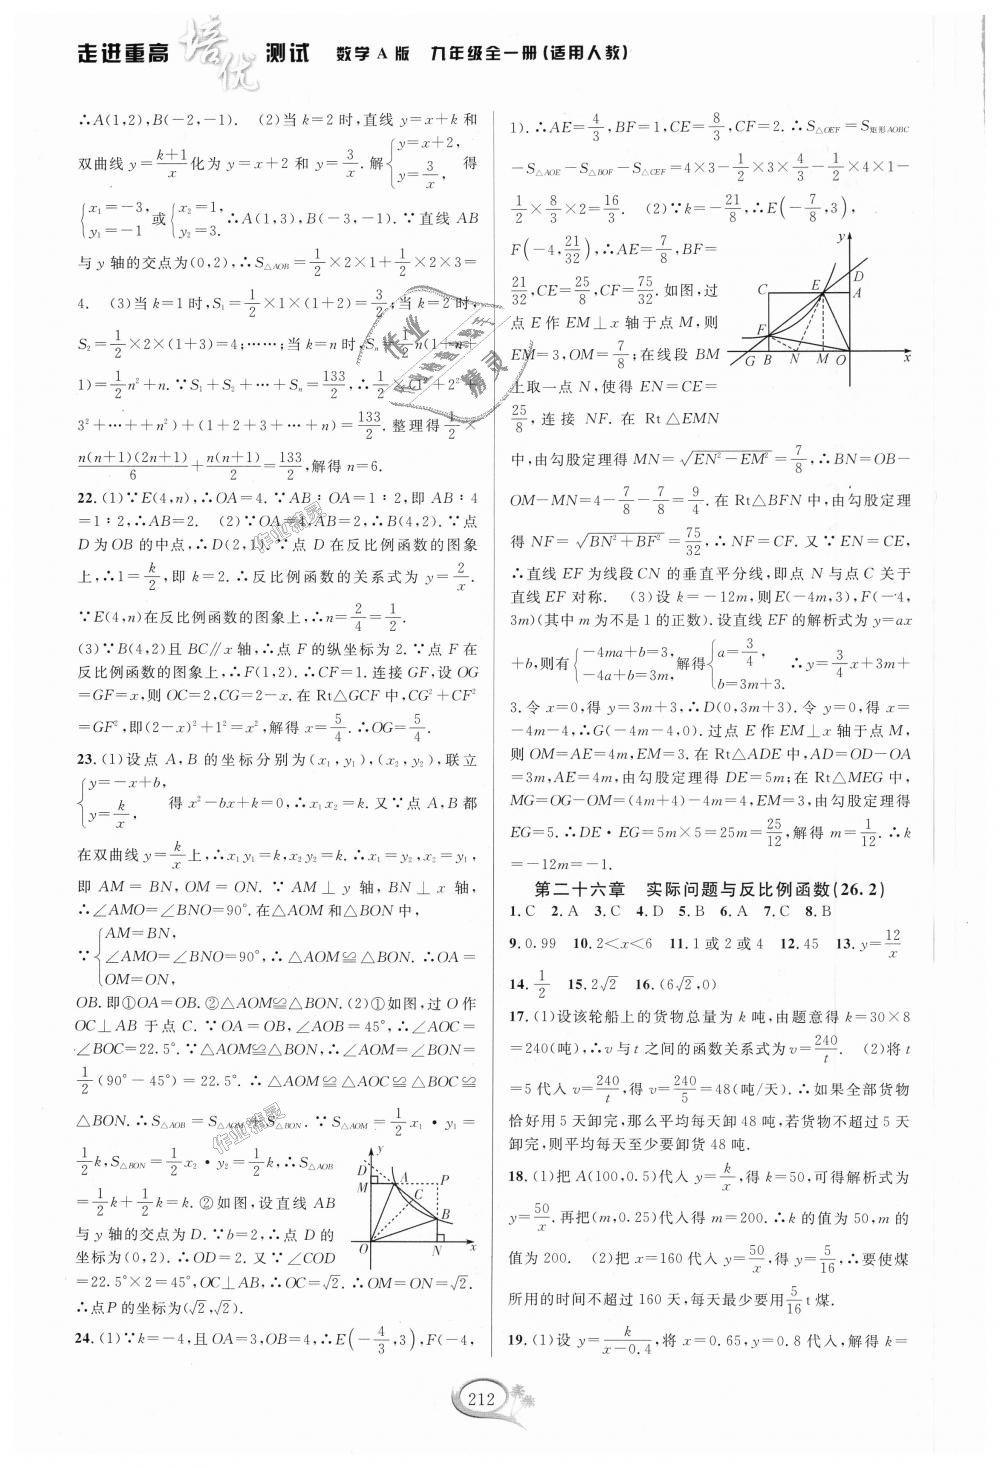 走进重高 培优 测试 数学 A 版 九年级全一册(适用人教)
∴A(1,2),B(-2,-1). (2)当 k=2 时,直线 y=x+k 和
双曲线 y=\frac{k+1}{x} 化为 y=x+2 和 y=\frac{3}{x}. 解{y=x+2, y=\frac{3}{x}, 得
{x₁=-3, y₁=-1 或{x₂=1, y₂=3. ∴A(1,3),B(-3,-1). ∵直线 AB
与 y 轴的交点为(0,2),∴S△AOB=\frac{1}{2}×2×1+\frac{1}{2}×2×3=
4. (3)当 k=1 时,S₁=\frac{1}{2}×1×(1+2)=\frac{3}{2};当 k=2 时,
S₂=\frac{1}{2}×2×(1+3)=4;……;当 k=n 时,Sₙ=\frac{1}{2}n(1+n+
1)=\frac{1}{2}n²+n. ∵S₁+S₂+…+Sₙ=\frac{133}{2},∴\frac{1}{2}×(1²+2²+
3²+…++n²)+(1+2+3+…+n)=\frac{133}{2}. 整理得\frac{1}{2}×
\frac{n(n+1)(2n+1)}{6}+\frac{n(n+1)}{2}=\frac{133}{2},解得 n=6.
22. (1)∵E(4,n),∴OA=4. ∵AB∶OA=1∶2,即 AB∶4
=1∶2,∴AB=2. (2)∵OA=4,AB=2,∴B(4,2). ∵点
D 为 OB 的中点,∴D(2,1). ∵点 D 在反比例函数的图象
上,∴1=\frac{k}{2},即 k=2. ∴反比例函数的关系式为 y=\frac{2}{x}.
∵E(4,n)在反比例函数的图象上,∴n=\frac{2}{4}=\frac{1}{2}.
(3)∵B(4,2)且 BC∥x 轴,∴点 F 的纵坐标为 2. ∵点 F 在
反比例函数的图象上,∴F(1,2). ∴CF=1. 连接 GF,设 OG
=GF=x,则 OC=2,CG=2-x. 在 Rt△GCF 中,CG²+CF²
=GF²,即(2-x)²+1²=x²,解得 x=\frac{5}{4}. ∴OG=\frac{5}{4}.
23. (1)设点 A,B 的坐标分别为(x₁,y₁),(x₂,y₂),联立
{y=-x+b, y=\frac{k}{x}, 得 x²-bx+k=0,∴x₁x₂=k. 又∵点 A,B 都
在双曲线 y=\frac{k}{x}上,∴x₁y₁=k,x₂y₂=k. ∴x₁=y₂,x₂=y₁,
即 AM=BN,OM=ON. ∵AM⊥y 轴,BN⊥x 轴,
∴∠AMO=∠BNO=90°. 在△AOM 和△BON 中,
∵{AM=BN, ∠AMO=∠BNO=90°, OM=ON, ∴△AOM≌△BON. ∴OA=
OB. 即①OA=OB. ②△AOM≌△BON. (2)①如图,过 O 作
OC⊥AB 于点 C. ∵OA=OB,∠AOB=45°,∴∠AOC=
∠BOC=22.5°. ∵△AOM≌△BON,∴∠AOM=∠BON=
\frac{1}{2}(90°-45°)=22.5°. ∴△AOM≌△AOC≌△BOC≌
△BON. ∴S△AOB=S△AOM+S△BON. ∵S△AOM=\frac{1}{2}x₁·y₁=
\frac{1}{2}k,S△BON=\frac{1}{2}x₂·y₂=\frac{1}{2}k,∴S△AOB
=\frac{1}{2}k+\frac{1}{2}k=k. ②如图,设直线 AB
与 y 轴的交点为 D. ∵b=2,∴点 D 的
坐标为(0,2). ∴OD=2. 又∵∠COD
=22.5°×2=45°,OC⊥AB,∴OC=√2. ∴OM=ON=√2.
∴点P 的坐标为(√2,√2).
y
D
M
A
P
C
B
O
N
x
24. (1)∵k=-4,且 OA=3,OB=4,∴E(-\frac{4}{3},3),F(-4,
1). ∴AE=\frac{4}{3},BF=1,CE=\frac{8}{3},CF=2. ∴S△OEF=S矩形AOBC
-S△AOE-S△BOF-S△CEF=4×3-\frac{1}{2}×3×\frac{4}{3}-\frac{1}{2}×4×1-
\frac{1}{2}×\frac{8}{3}×2=\frac{16}{3}. (2)∵k=-\frac{21}{8},∴E(-\frac{7}{8},3),
F(-4,\frac{21}{32}),∴AE=\frac{7}{8},BF=
\frac{21}{32},CE=\frac{25}{8},CF=\frac{75}{32}. 如图,过
点 E 作 EM⊥x 轴于点 M,则
EM=3,OM=\frac{7}{8};在线段 BM
上取一点 N,使得 EN=CE=
\frac{25}{8},连接 NF. 在 Rt△EMN
y
D
C
E
A
F
G
B
N
M
O
x
中,由勾股定理得 MN=√(EN²-EM²)=\frac{7}{8},∴BN=OB-
OM-MN=4-\frac{7}{8}-\frac{7}{8}=\frac{9}{4}. 在 Rt△BFN 中,由勾股定理
得 NF=√(BN²+BF²)=\frac{75}{32},∴NF=CF. 又∵EN=CE,
∴直线 EF 为线段 CN 的垂直平分线,即点 N 与点 C 关于
直线 EF 对称. (3)设 k=-12m,则E(-4m,3),F(-4,
3m)(其中 m 为不是 1 的正数). 设直线 EF 的解析式为 y=ax
+b,则有{-4ma+b=3, -4a+b=3m, 解得{a=\frac{3}{4}, b=3m+3. ∴y=\frac{3}{4}x+3m+
3. 令 x=0,得 y=3m+3,∴D(0,3m+3). 令 y=0,得 x=
-4m-4,∴G(-4m-4,0). 过点 E 作 EM⊥x 轴于点 M,
则 OM=AE=4m,EM=3. 在 Rt△ADE 中,AD=OD-OA
=3m,AE=4m,由勾股定理得 DE=5m;在 Rt△MEG 中,
MG=OG-OM=(4m+4)-4m=4,EM=3,由勾股定理得
EG=5. ∴DE·EG=5m×5=25m=\frac{25}{12},解得 m=\frac{1}{12}. ∴k
=-12m=-1.
第二十六章 实际问题与反比例函数(26.2)
1. C 2. A 3. C 4. D 5. B 6. A 7. C 8. B
9. 0.99 10. 2<x<6 11. 1 或 2 或 4 12. 45 13. y=\frac{12}{x}
14. \frac{1}{2} 15. 2√2 16. (6√2,0)
17. (1)设该轮船上的货物总量为 k 吨,由题意得 k=30×8
=240(吨),∴v 与 t 之间的函数关系式为 v=\frac{240}{t}. (2)将 t
=5 代入 v=\frac{240}{t},得 v=\frac{240}{5}=48(吨/天). ∴如果全部货物
恰好用 5 天卸完,那么平均每天卸 48 吨,若货物不超过 5 天
卸完,则平均每天至少要卸货 48 吨.
18. (1)把 A(100,0.5)代入 y=\frac{k}{x},得 k=50,可得解析式为
y=\frac{50}{x}. 再把(m,0.25)代入得 m=200. ∴k 的值为 50,m 的
值为 200. (2)把 x=160 代入 y=\frac{50}{x},得 y=\frac{5}{16},∴要使煤
所用的时间不超过 160 天,每天最少要用\frac{5}{16}t 煤.
19. (1)设 y=\frac{k}{x-0.4},将 x=0.65,y=0.8 代入,解得 k=
212
作业精灵
作业精灵